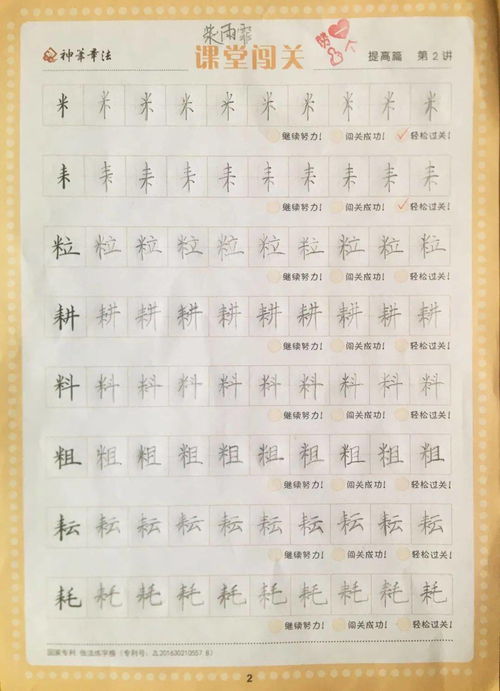 柴雨霏
神笔章法 课堂闯关 努 人 提高篇 第2讲
米 米 米 米 米 米 米 米 米 米
继续努力! 闯关成功! 轻松过关!
耒 耒 耒 耒 耒 耒 耒 耒 耒 耒
继续努力! 闯关成功! 轻松过关!
粒 粒 粒 粒 粒 粒 粒 粒 粒 粒
继续努力! 闯关成功! 轻松过关!
耕 耕 耕 耕 耕 耕 耕 耕 耕 耕
继续努力! 闯关成功! 轻松过关!
料 料 料 料 料 料 料 料 料 料
继续努力! 闯关成功! 轻松过关!
粗 粗 粗 粗 粗 粗 粗 粗 粗 粗
继续努力! 闯关成功! 轻松过关!
耘 耘 耘 耘 耘 耘 耘 耘 耘 耘
继续努力! 闯关成功! 轻松过关!
耗 耗 耗 耗 耗 耗 耗 耗 耗 耗
继续努力! 闯关成功! 轻松过关!
国家专利 做法练字格 (专利号: ZL201630210557.8)
2